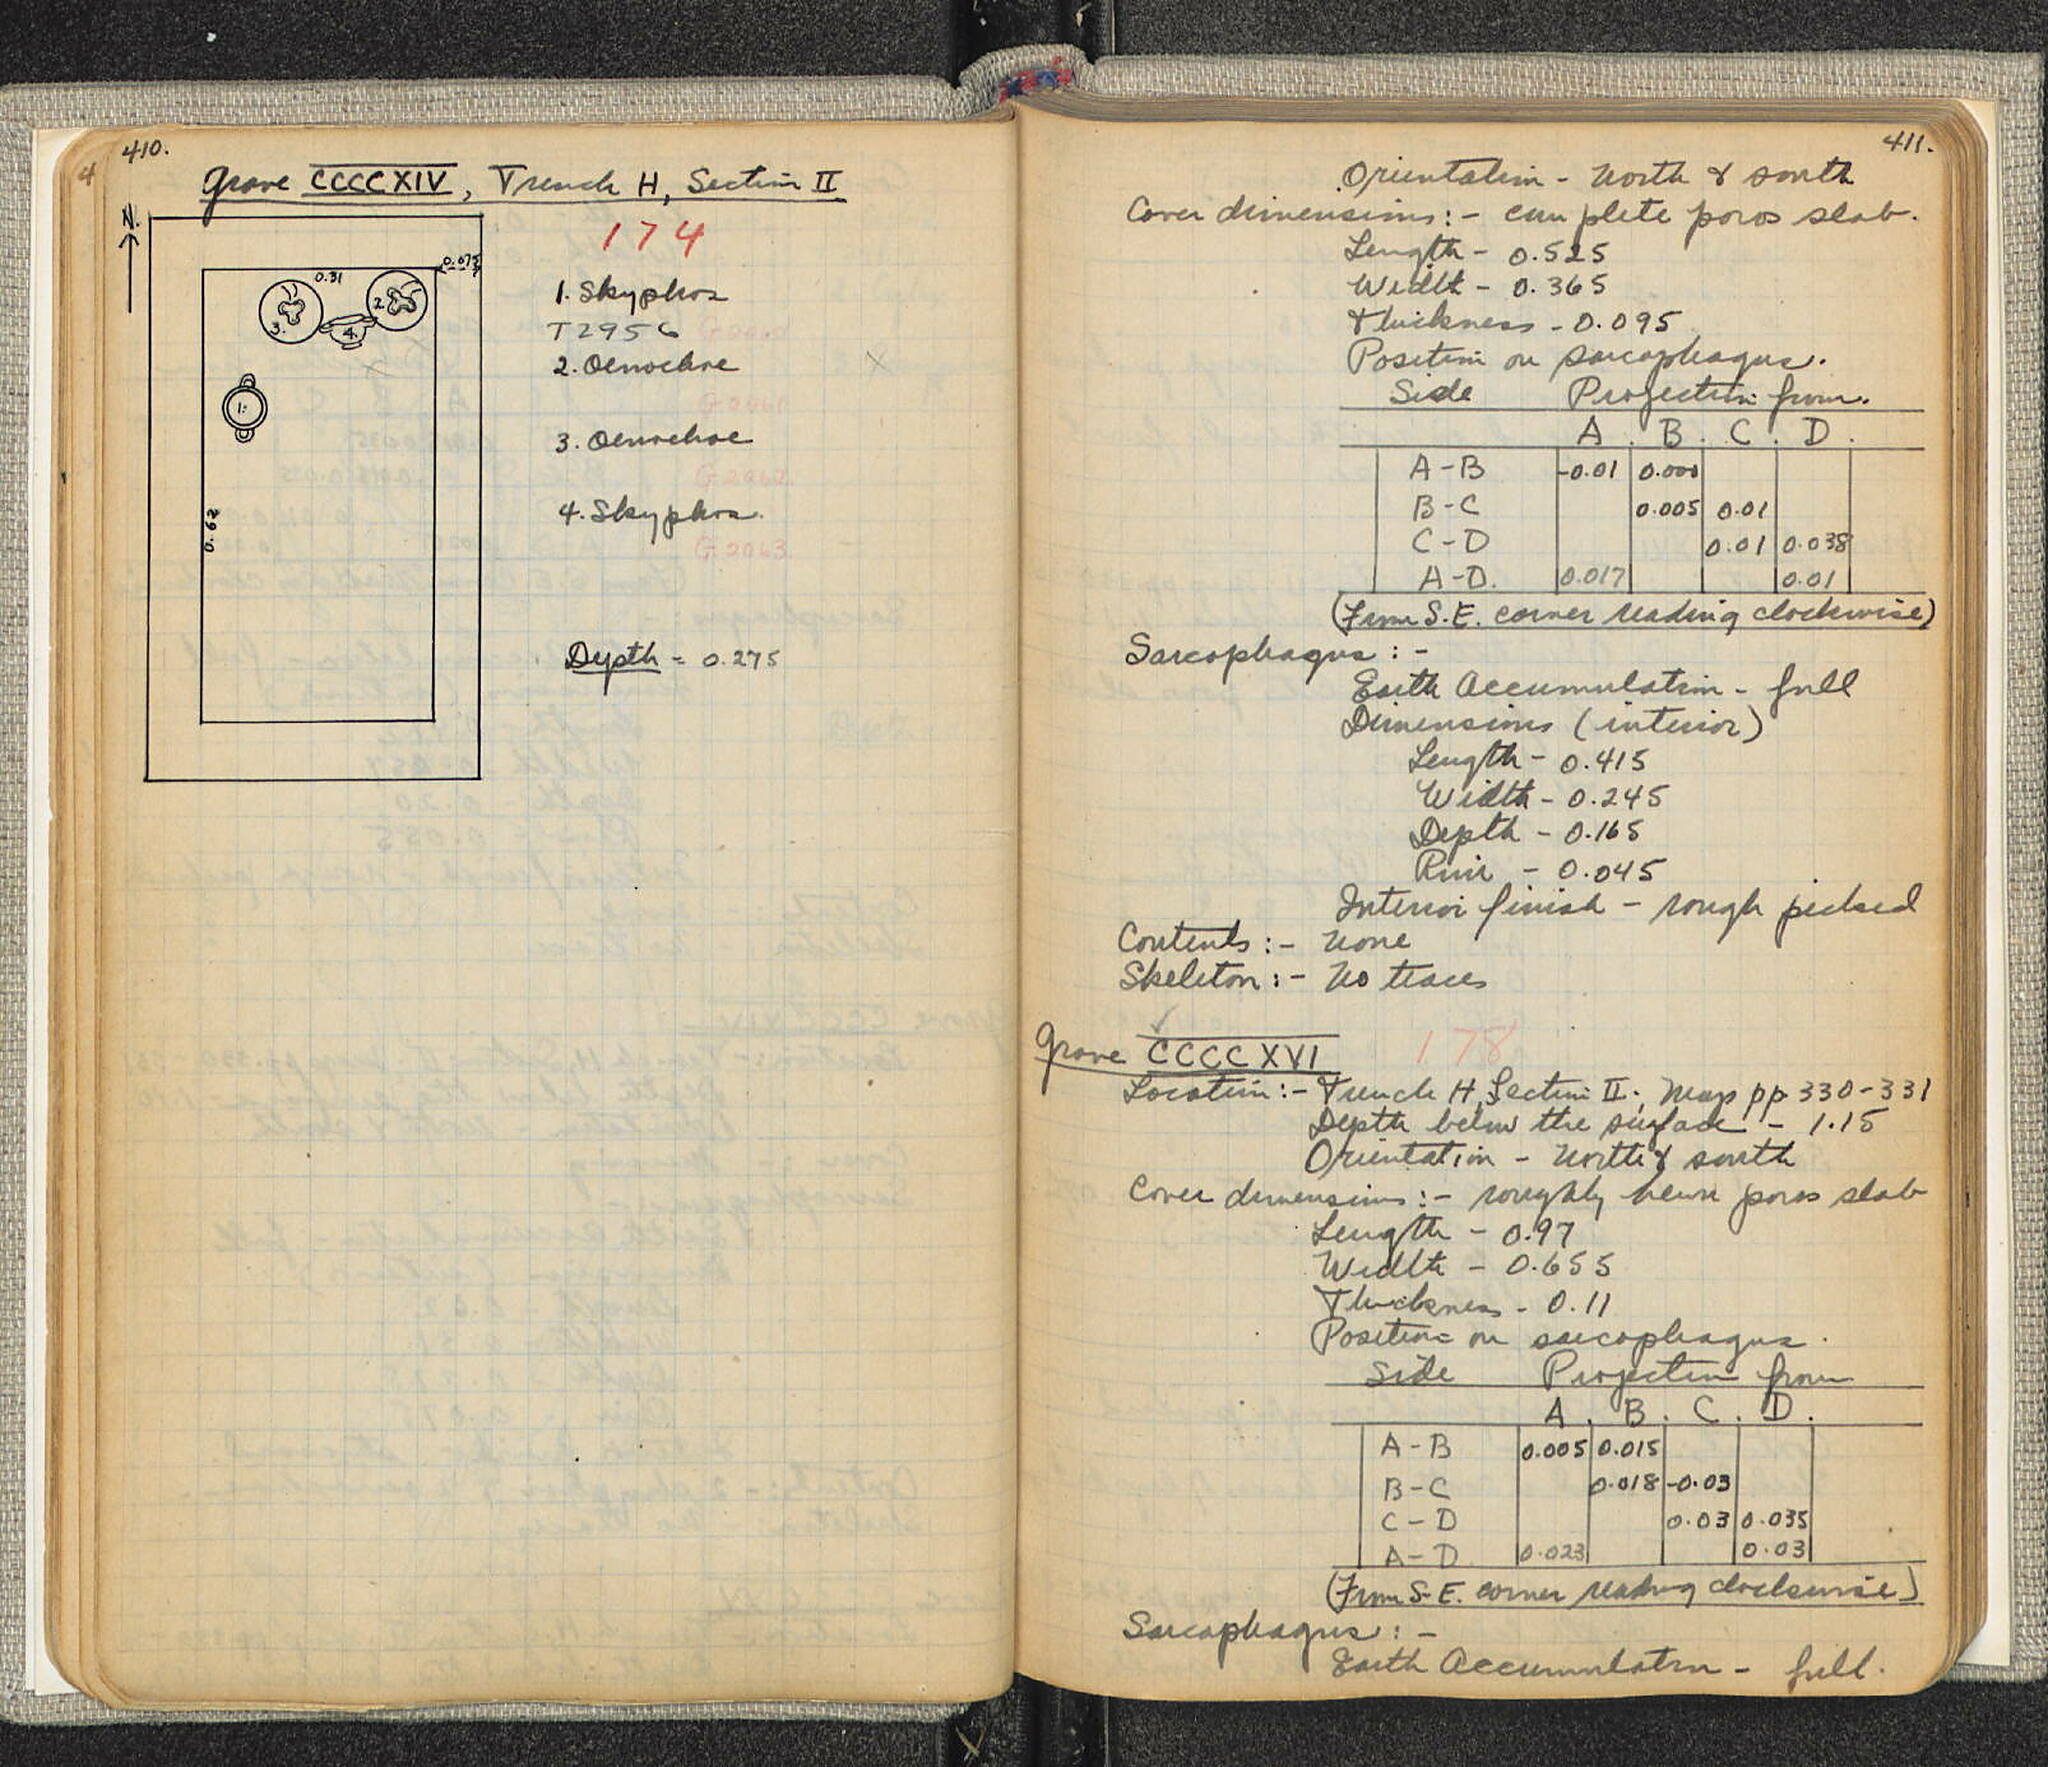 410.
4
Grave CCCCXIV, Trench H, Section II
N.
174
0.075
0.31
3.
2.
4.
1.
0.62
1. Skyphos
T2956
2. Oenochoe
X
3. Oenochoe
4. Skyphos.
Depth = 0.275
411.
Orientation - North & south
Cover dimensions:- complete poros slab.
Length - 0.525
Width - 0.365
Thickness - 0.095
Position on sarcophagus.
Side Projection from.
A. B. C. D.
A-B -0.01 0.000
B-C 0.005 0.01
C-D 0.01 0.038
A-D. 0.017 0.01
(From S.E. corner reading clockwise)
Sarcophagus:-
Earth Accumulation - full
Dimensions (interior)
Length - 0.415
Width - 0.245
Depth - 0.165
Rim - 0.045
Interior finish - rough picked
Contents:- None
Skeleton:- No traces
Grave CCCCXVI 178
Location:- Trench H, Section II; Map pp. 330-331
Depth below the surface - 1.15
Orientation - North & south
Cover dimensions:- roughly hewn poros slab
Length - 0.97
Width - 0.655
Thickness - 0.11
Position on sarcophagus.
Side Projection from
A. B. C. D.
A-B 0.005 0.015
B-C 0.018 -0.03
C-D 0.03 0.035
A-D 0.023 0.03
(From S.E. corner reading clockwise)
Sarcophagus:-
Earth Accumulation - full.